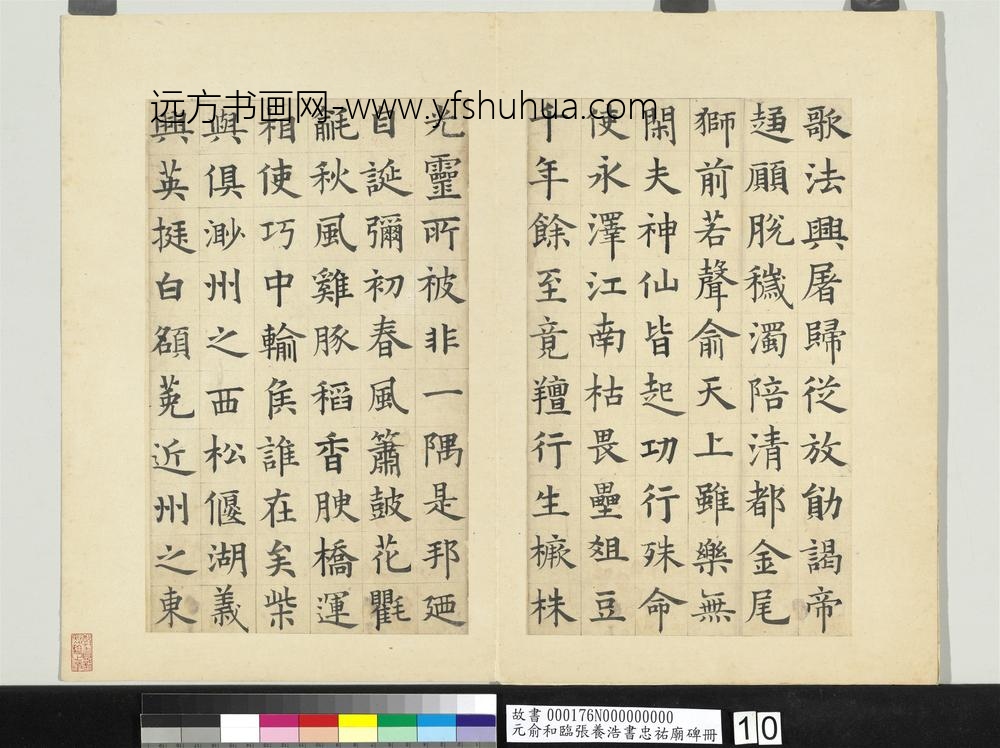 远方书画网-www.yfshuhua.com
歌法興屠歸從放勛謁帝
顧脫穢濁陪清都金尾
獅前若聲俞天上雖樂無
閑夫神仙皆起功行殊命
使永澤江南枯畏壘俎豆
千年餘至竟羶行生橛株
光靈所被非一隅是邦廼
自誕彌初春風簫鼓花氍
毹秋風雞豚稻香腴橋運
相使巧中輸矦誰在矣柴
與俱渺州之西松偃湖義
興英挺白額近州之東
故書 000176N000000000
元俞和臨張養浩書忠祐廟碑冊
10